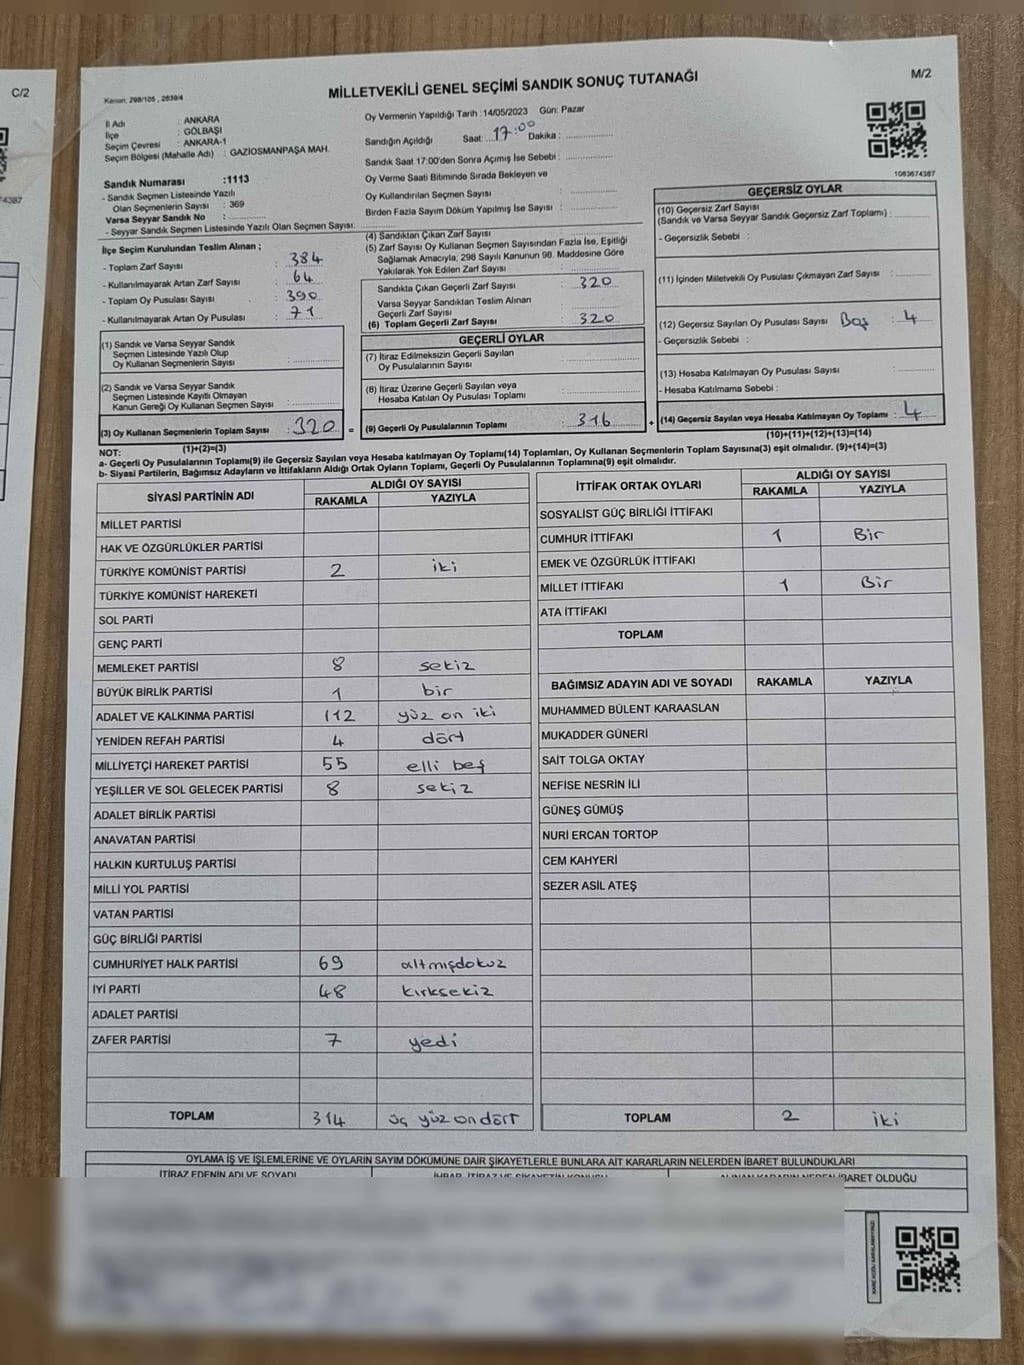 C/2
4387
M/2
Kanun: 298/105, 2839/4
MİLLETVEKİLİ GENEL SEÇİMİ SANDIK SONUÇ TUTANAĞI
İl Adı : ANKARA
İlçe : GÖLBAŞI
Seçim Çevresi : ANKARA-1
Seçim Bölgesi (Mahalle Adı) : GAZİOSMANPAŞA MAH.
Sandık Numarası :1113
- Sandık Seçmen Listesinde Yazılı
Olan Seçmenlerin Sayısı : 369
Varsa Seyyar Sandık No :
- Seyyar Sandık Seçmen Listesinde Yazılı Olan Seçmen Sayısı:
İlçe Seçim Kurulundan Teslim Alınan ;
- Toplam Zarf Sayısı : 384
- Kullanılmayarak Artan Zarf Sayısı : 64
- Toplam Oy Pusulası Sayısı : 390
- Kullanılmayarak Artan Oy Pusulası : 71
(1) Sandık ve Varsa Seyyar Sandık
Seçmen Listesinde Yazılı Olup
Oy Kullanan Seçmenlerin Sayısı :
(2) Sandık ve Varsa Seyyar Sandık
Seçmen Listesinde Kayıtlı Olmayan
Kanun Gereği Oy Kullanan Seçmen Sayısı :
(3) Oy Kullanan Seçmenlerin Toplam Sayısı : 320 =
(1)+(2)=(3)
Oy Vermenin Yapıldığı Tarih :14/05/2023 Gün: Pazar
Sandığın Açıldığı Saat: 17:00 Dakika :
Sandık Saat 17:00'den Sonra Açımış İse Sebebi :
Oy Verme Saati Bitiminde Sırada Bekleyen ve
Oy Kullandırılan Seçmen Sayısı :
Birden Fazla Sayım Döküm Yapılmış İse Sayısı :
(4) Sandıktan Çıkan Zarf Sayısı :
(5) Zarf Sayısı Oy Kullanan Seçmen Sayısından Fazla İse, Eşitliği
Sağlamak Amacıyla; 298 Sayılı Kanunun 98. Maddesine Göre
Yakılarak Yok Edilen Zarf Sayısı :
Sandıkta Çıkan Geçerli Zarf Sayısı : 320
Varsa Seyyar Sandıktan Teslim Alınan
Geçerli Zarf Sayısı :
(6) Toplam Geçerli Zarf Sayısı : 320
GEÇERLİ OYLAR
(7) İtiraz Edilmeksizin Geçerli Sayılan
Oy Pusulalarının Sayısı :
(8) İtiraz Üzerine Geçerli Sayılan veya
Hesaba Katılan Oy Pusulası Toplamı :
(9) Geçerli Oy Pusulalarının Toplamı : 316 +
1063674387
GEÇERSİZ OYLAR
(10) Geçersiz Zarf Sayısı
(Sandık ve Varsa Seyyar Sandık Geçersiz Zarf Toplamı) :
- Geçersizlik Sebebi :
(11) İçinden Milletvekili Oy Pusulası Çıkmayan Zarf Sayısı :
(12) Geçersiz Sayılan Oy Pusulası Sayısı Boş : 4
- Geçersizlik Sebebi :
(13) Hesaba Katılmayan Oy Pusulası Sayısı :
- Hesaba Katılmama Sebebi :
(14) Geçersiz Sayılan veya Hesaba Katılmayan Oy Toplamı : 4
(10)+(11)+(12)+(13)=(14)
NOT:
a- Geçerli Oy Pusulalarının Toplamı(9) ile Geçersiz Sayılan veya Hesaba katılmayan Oy Toplamı(14) Toplamları, Oy Kullanan Seçmenlerin Toplam Sayısına(3) eşit olmalıdır. (9)+(14)=(3)
b- Siyasi Partilerin, Bağımsız Adayların ve İttifakların Aldığı Ortak Oyların Toplamı, Geçerli Oy Pusulalarının Toplamına(9) eşit olmalıdır.
SİYASİ PARTİNİN ADI ALDIĞI OY SAYISI
RAKAMLA YAZIYLA
MİLLET PARTİSİ
HAK VE ÖZGÜRLÜKLER PARTİSİ
TÜRKİYE KOMÜNİST PARTİSİ 2 iki
TÜRKİYE KOMÜNİST HAREKETİ
SOL PARTİ
GENÇ PARTİ
MEMLEKET PARTİSİ 8 sekiz
BÜYÜK BİRLİK PARTİSİ 1 bir
ADALET VE KALKINMA PARTİSİ 112 yüz on iki
YENİDEN REFAH PARTİSİ 4 dört
MİLLİYETÇİ HAREKET PARTİSİ 55 elli beş
YEŞİLLER VE SOL GELECEK PARTİSİ 8 sekiz
ADALET BİRLİK PARTİSİ
ANAVATAN PARTİSİ
HALKIN KURTULUŞ PARTİSİ
MİLLİ YOL PARTİSİ
VATAN PARTİSİ
GÜÇ BİRLİĞİ PARTİSİ
CUMHURİYET HALK PARTİSİ 69 altmışdokuz
İYİ PARTİ 48 kırksekiz
ADALET PARTİSİ
ZAFER PARTİSİ 7 yedi
TOPLAM 314 üç yüz ondört
İTTİFAK ORTAK OYLARI ALDIĞI OY SAYISI
RAKAMLA YAZIYLA
SOSYALİST GÜÇ BİRLİĞİ İTTİFAKI
CUMHUR İTTİFAKI 1 Bir
EMEK VE ÖZGÜRLÜK İTTİFAKI
MİLLET İTTİFAKI 1 Bir
ATA İTTİFAKI
TOPLAM
BAĞIMSIZ ADAYIN ADI VE SOYADI RAKAMLA YAZIYLA
MUHAMMED BÜLENT KARAASLAN
MUKADDER GÜNERİ
SAİT TOLGA OKTAY
NEFİSE NESRİN İLİ
GÜNEŞ GÜMÜŞ
NURİ ERCAN TORTOP
CEM KAHYERİ
SEZER ASİL ATEŞ
TOPLAM 2 iki
OYLAMA İŞ VE İŞLEMLERİNE VE OYLARIN SAYIM DÖKÜMÜNE DAİR ŞİKAYETLERLE BUNLARA AİT KARARLARIN NELERDEN İBARET BULUNDUKLARI
İTİRAZ EDENİN ADI VE SOYADI İHBAR, İTİRAZ VE ŞİKAYETİN KONUSU ALINAN KARARIN NEDEN İBARET OLDUĞU